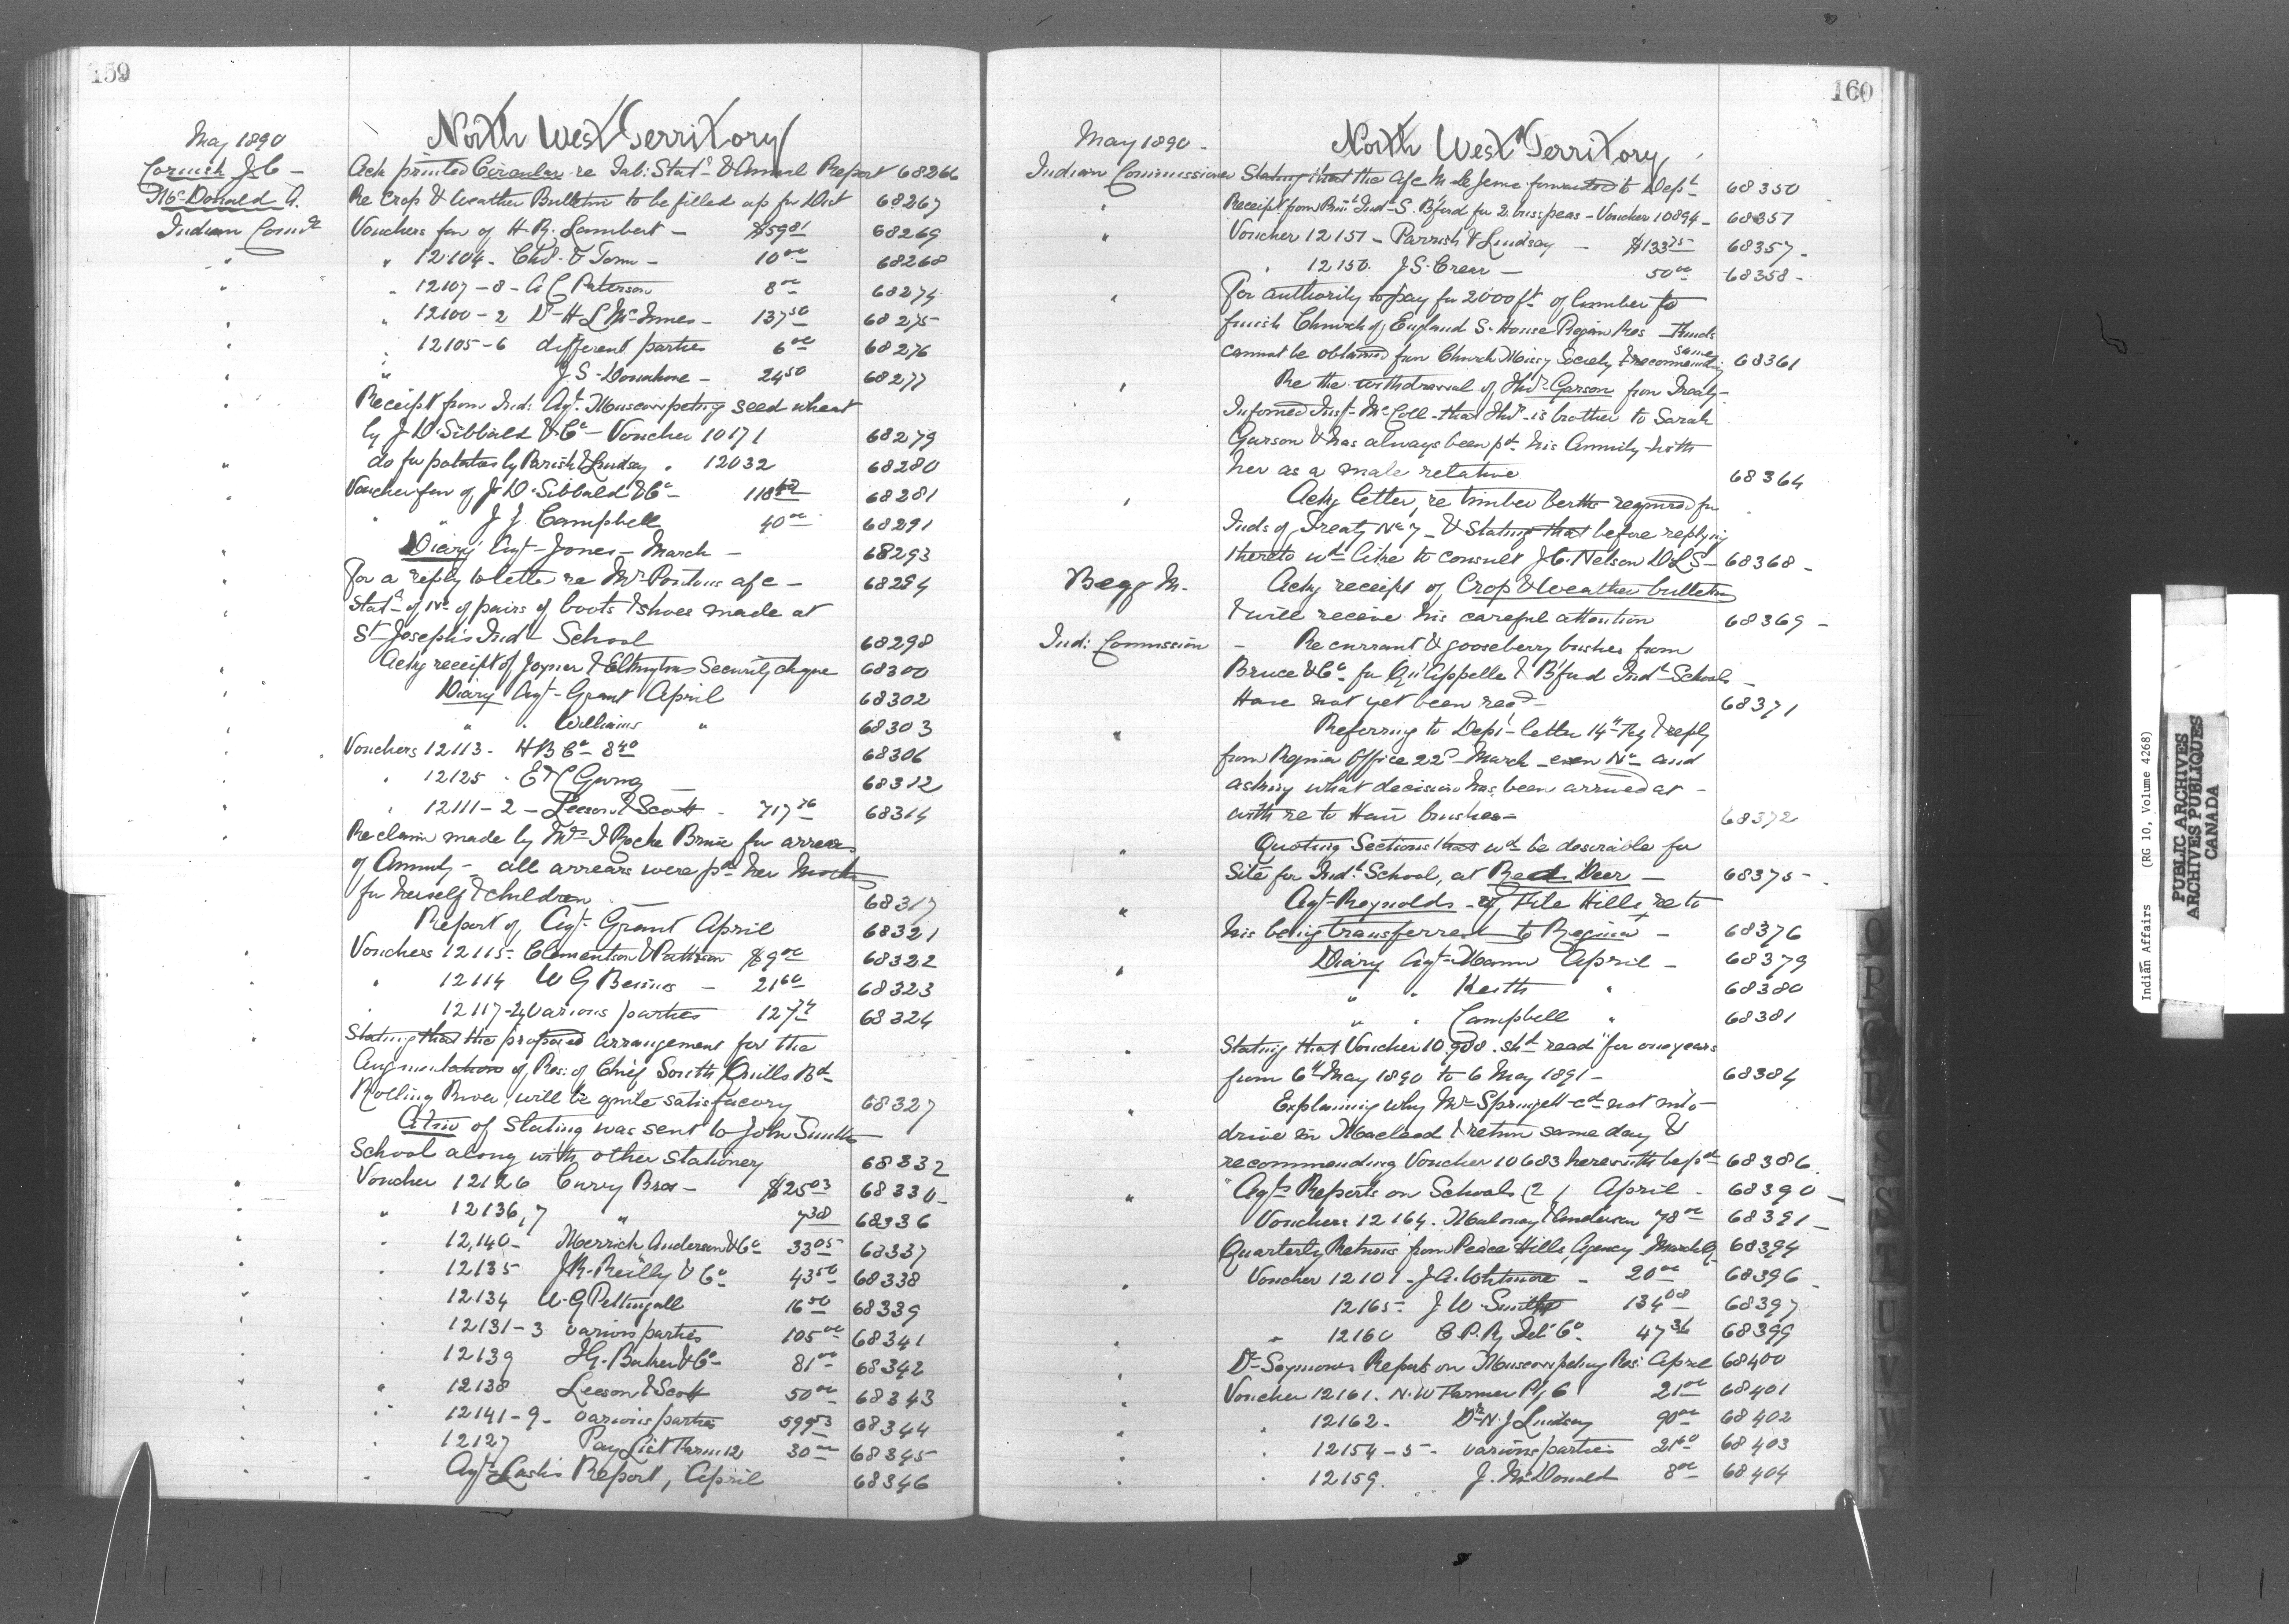 159
North West Territory
May 1890
Cornish J. C — Ack printed Circular re Tab: Stat<sup>s</sup> & Annual Report 68266
McDonald A. Re Crop & Weather Bulletin to be filled up for Dist 68267
Indian Com<sup>r</sup> Vouchers fav of H. R. Lambert — $59 81 68269
" " 12104 — Chd. & Tom — 10 00 68268
" " 12107–8 – A C Paterson 8 00 68274
" " 12100–2 Dr H L McInnes — 137 50 68275
" " 12105–6 different parties 6 00 68276
" " J S Donahue — 24 50 68277
" Receipt from Ind: Agt. Muscowpetung seed wheat
by J D Sibbald & Co — Voucher 10171 68279
" do for potatoes by Parish & Lindsay " 12032 68280
" Voucher fav of J. D. Sibbald & Co — 68281
" " J J Campbell 40 00 68291
" Diary Agt Jones — March — 68293
" For a reply to letter re Mr Pontons a/c — 68294
" Stat of No of pairs of boots & shoes made at
St Joseph's Ind School 68298
" Ackg receipt of Joyner & Elkingtons Security cheque 68300
" Diary Agt Grant April 68302
" " " Williams " 68303
" Vouchers 12113 – H B Co 8 40 68306
" " 12125 68312
" " 12111–2 — Leeson & Scott 717 76 68314
" Re claim made by Mrs I Roche Brice for arrears
of Annuity — all arrears were pd her Mother
for herself & children 68317
Report of Agt Grant April 68321
" Vouchers 12115 – Clementson & Patterson $9 00 68322
" " 12114 W G 21 60 68323
" " 12117– various parties 127 68324
" Stating that the proposed arrangement for the
Augmentation of Res: of Chief South Quills Bd
Rolling River, will be quite satisfactory 68327
of Stating was sent to John Smiths
School along with other Stationery 68332
" Voucher 12126 Curry Bros — $25 03 68330
" " 12136,7 " 7 38 68336
" " 12,140 — Merrick Anderson & Co 33 05 68337
" " 12135 J R. Reilly & Co 43 50 68338
" " 12134 W. G Pettingall 16 50 68339
" " 12131–3 various parties 105 00 68341
" " 12139 J G. Baker & Co 81 00 68342
" " 12138 Leeson & Scott 50 00 68343
" " 12141–9 — various parties 599 53 68344
" " 12127 Pay List Farm 12 30 00 68345
" Agt Lash's Report, April 68346
160
North West Territory
May 1890 —
Indian Commissioner Stating that the a/c M LeJeune forwarded to Dept 68350
" Receipt from Prin<sup>l</sup> Ind. S. B'ford for 2 buss peas — Voucher 10894 — 68351
" Voucher 12151 — Parrish & Lindsay — $133 75 68357
" 12150. J. S. Crear — 50 00 68358
" For authority to pay for 2000 ft of lumber to
finish Church of England S. House Res Funds
cannot be obtained from Church Missy Society & recommending same 68361
" Re the withdrawal of Thos Garson from Treaty —
Informed Inst McColl — that Thos is brother to Sarah
Garson & has always been pd his Annuity with
her as a male relative 68364
" Ackg letter, re timber berths required for
Inds of Treaty No 7 — & Stating that before replying
thereto wd like to consult J. C. Nelson D.L.S — 68368
Begg M. Ackg receipt of Crop & Weather bulletin
& will receive his careful attention 68369
Ind: Commission — Re currant & gooseberry bushes from
Bruce & Co for Qu'Appelle & B'ford Ind Schools —
Have not yet been recd — 68371
" Referring to Dept letter 14th & reply
from Regina Office 22d March — even No and
asking what decision has been arrived at —
with re to Hair brushes — 68372
" Quoting Sections that wd be desirable for
Site for Ind. School, at Red Deer — 68375
" Agt Reynolds — of File Hills, re to
his being transferred to Regina — 68376
" Diary Agt Mann April — 68379
" " Keith " 68380
" " Campbell " 68381
" Stating that Voucher 10908 shd read "for one year
from 6th May 1890 to 6 May 1891 — 68384
" Explaining why Mr Springett cd not
drive in Macleod & return same day &
recommending Voucher 10683 herewith be pd 68386
" Agts Reports on Schools (2) April 68390
Vouchers 12164. Maloney & Anderson 78 00 68391
Quarterly Returns from Peace Hills, Agency March Q 68394
" Voucher 12101 — J A. Whitmore — 20 00 68396
" 12165 — J. W. Smith 134 08 68397
" " 12160 C. P. Ry Tel. Co 47 36 68399
" Dr Seymours Report on Muscowpetung Res: April 68400
" Voucher 12161. N. W Farmer P/g C 21 00 68401
" " 12162 — Dr N. J Lindsay 90 00 68402
" " 12154–5 — various parties 21 60 68403
" " 12159. J. McDonald 8 00 68404
Indian Affairs (RG 10, Volume 4268)
PUBLIC ARCHIVES
ARCHIVES PUBLIQUES
CANADA